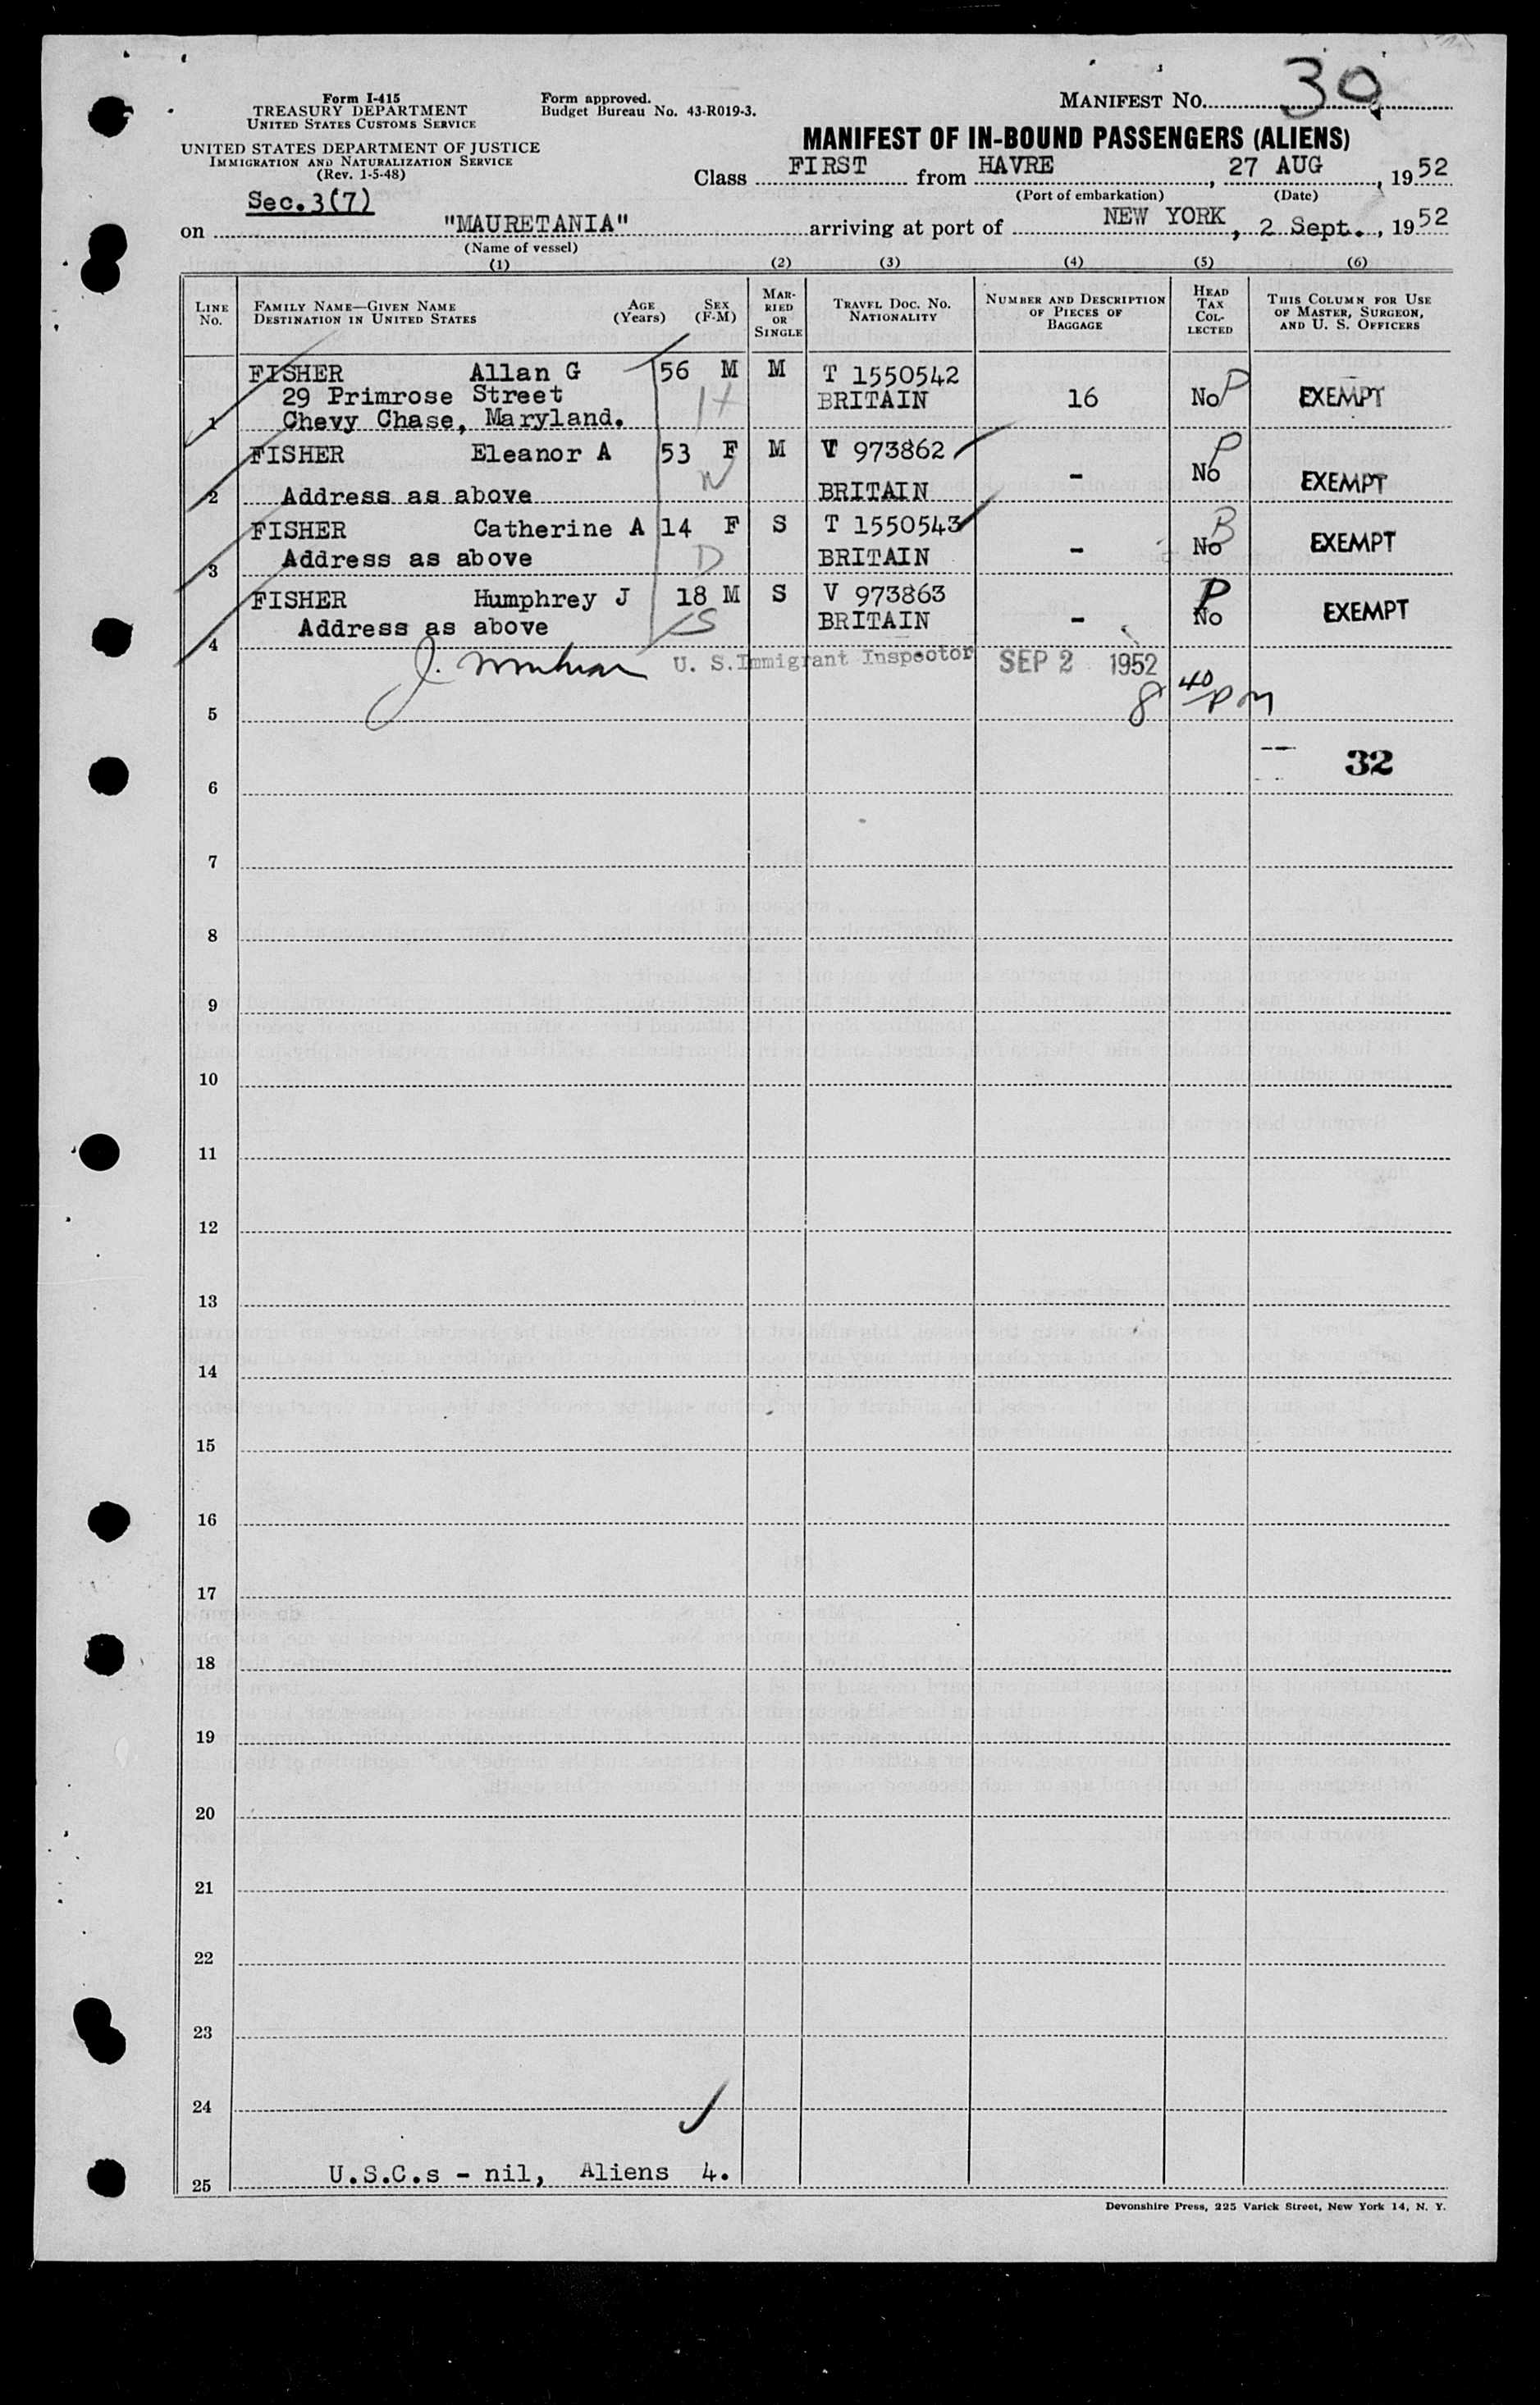 MANIFEST NO. 30
Form I-415
TREASURY DEPARTMENT
UNITED STATES CUSTOMS SERVICE
Form approved.
Budget Bureau No. 43-R019-3.
UNITED STATES DEPARTMENT OF JUSTICE
IMMIGRATION AND NATURALIZATION SERVICE
(Rev. 1-5-48)
MANIFEST OF IN-BOUND PASSENGERS (ALIENS)
Class FIRST from HAVRE, 27 AUG, 1952
(Port of embarkation) (Date)
Sec.3(7)
on "MAURETANIA" arriving at port of NEW YORK, 2 Sept., 1952
(Name of vessel)
(1) (2) (3) (4) (5) (6)
LINE No. FAMILY NAME—GIVEN NAME DESTINATION IN UNITED STATES AGE (Years) SEX (F-M) MARRIED OR SINGLE TRAVEL DOC. NO. NATIONALITY NUMBER AND DESCRIPTION OF PIECES OF BAGGAGE HEAD TAX COLLECTED THIS COLUMN FOR USE OF MASTER, SURGEON, AND U. S. OFFICERS
FISHER Allan G 56 M M T 1550542
29 Primrose Street H BRITAIN 16 No P EXEMPT
1 Chevy Chase, Maryland.
FISHER Eleanor A 53 F M V 973862 P
W No
2 Address as above BRITAIN - EXEMPT
FISHER Catherine A 14 F S T 1550543 B
Address as above D BRITAIN - No EXEMPT
3
FISHER Humphrey J 18 M S V 973863 P
Address as above S BRITAIN - No EXEMPT
4
J. U. S. Immigrant Inspector SEP 2 1952
5 8 40 PM
32
6
7
8
9
10
11
12
13
14
15
16
17
18
19
20
21
22
23
24
25 U.S.C.s - nil, Aliens 4.
Devonshire Press, 225 Varick Street, New York 14, N. Y.